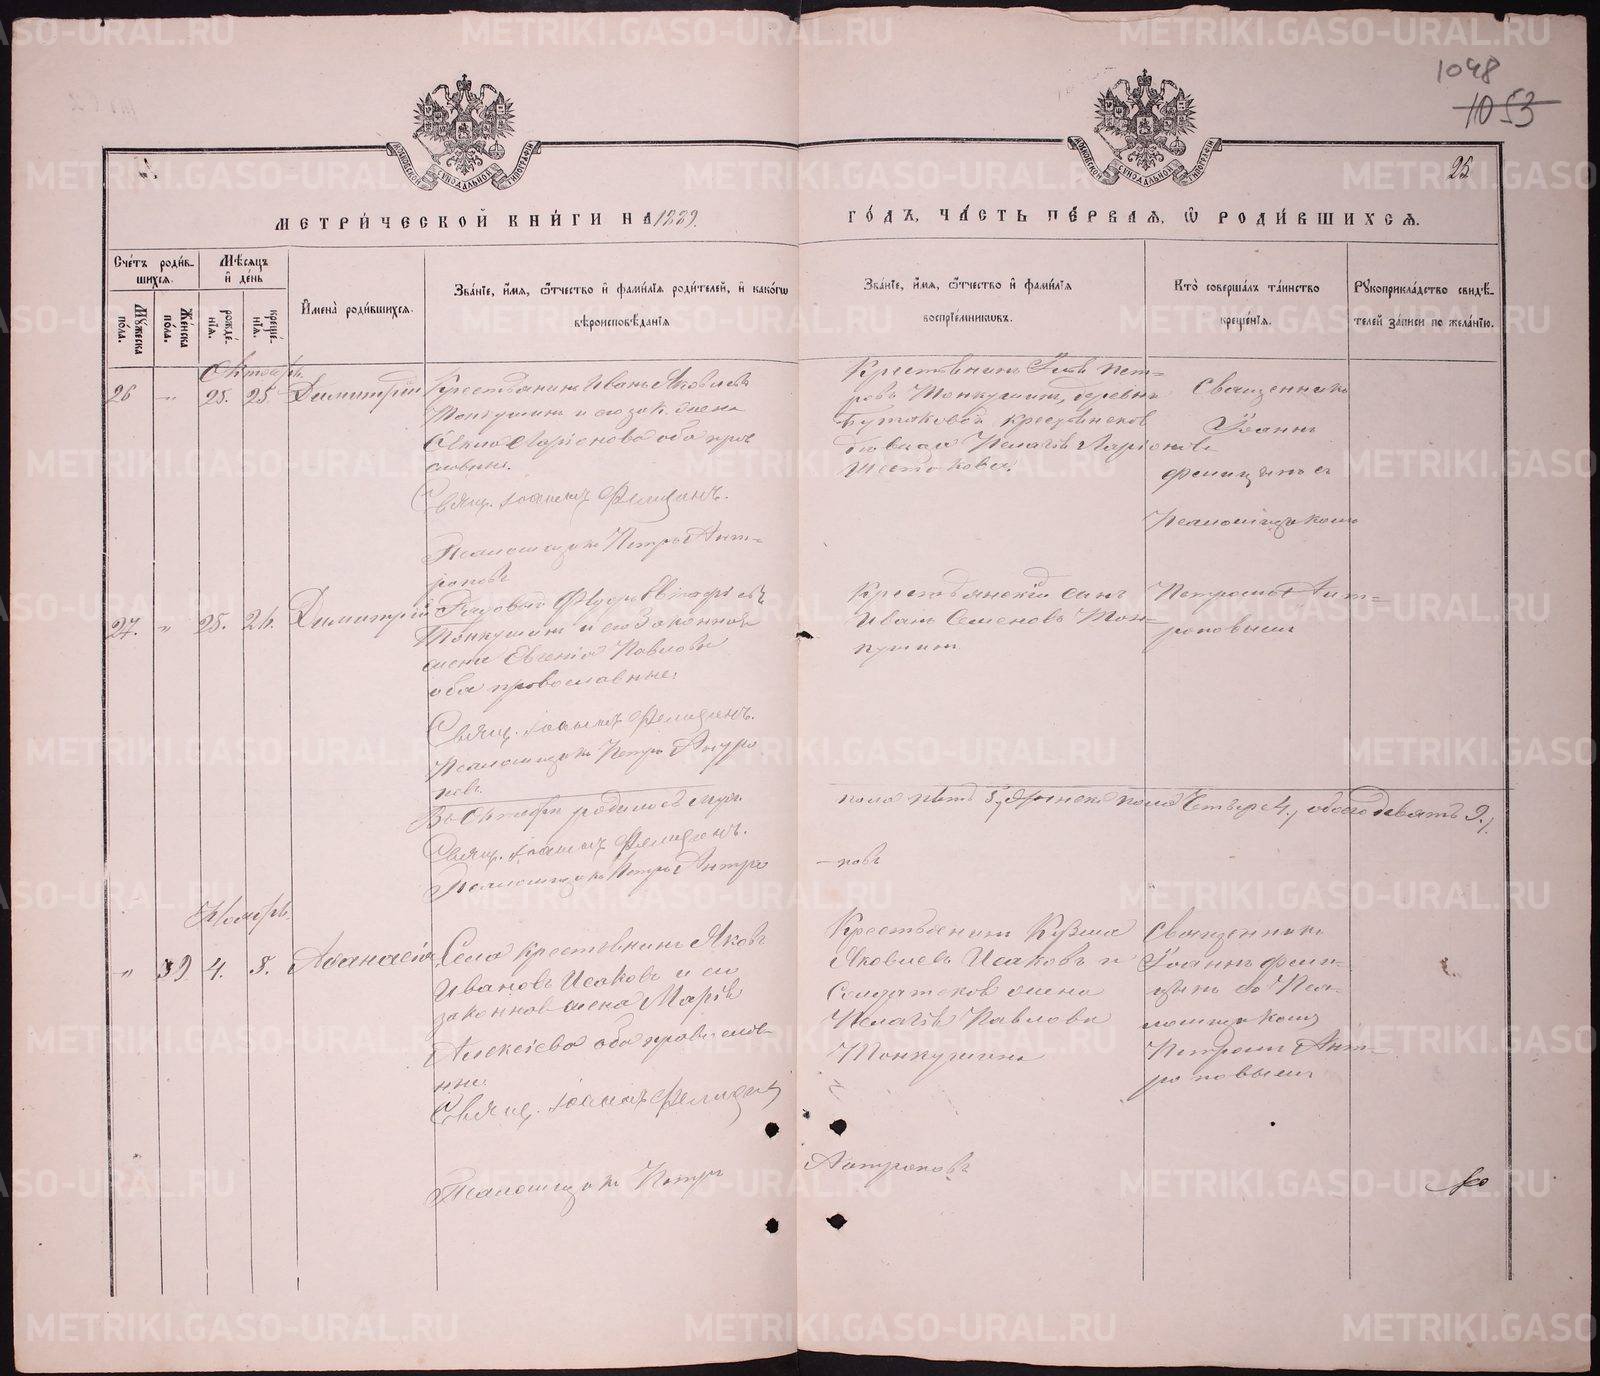 1048
1053
25.
МЕТРИ́ЧЕСКОЙ КНИ́ГИ НА 1889.
ГО́ДЪ, ЧА́СТЬ ПЕ́РВАЯ, Ѡ РОДИ́ВШИХСЯ.
Сче́тъ роди́вшихся.
Му́жеска по́ла.
Же́нска по́ла.
Мѣ́сяцъ и де́нь
рожде́нїя.
креще́нїя.
Имена̀ роди́вшихся.
Зва́нїе, и́мя, ѻ҆́тчество и фами́лїя роди́телей, и како́гѡ
вѣроисповѣ́данїя
Зва́нїе, и́мя, ѻ҆́тчество и фами́лїя
воспрїе́мниковъ.
Кто̀ соверша́лъ та́инство
креще́нїя.
Рукоприкла́дство свидѣ́-
телей за́писи по жела́нїю.
Октябрь.
26 " 25. 25. Димитрій
Крестьянинъ Иванъ Яковлевъ
Тонкушинъ и его зак. жена
Ларіонова оба право
славные.
Свящ. Іоаннъ Фелицинъ.
Псаломщикъ Петръ Ант-
роповъ
Крестьянинъ Глѣбъ Пет-
ровъ Тонкушинъ, деревни
Бутаковой крестьянская
девица Пелагія Ларіонова
Шестакова.
Священникъ
Іоаннъ
Фелицинъ съ
Псаломщикомъ
27. " 25. 26. Димитрій
Рядовой Федоръ
Тонкушинъ и его законная
жена Евгенія Павлова
оба православные.
Свящ. Іоаннъ Фелицинъ.
Псаломщикъ Петръ Антро
повъ.
Крестьянскій сынъ
Иванъ Семеновъ Тон-
кушинъ
Петромъ Ант-
роповымъ
Въ Октябрѣ родилось муж.
пола пять 5, женска пола четыре 4, обоего девять 9.
Свящ. Іоаннъ Фелицинъ.
Псаломщикъ Петръ Антро
-повъ
Ноябрь.
" 39. 4. 8. Афанасія
Села крестьянинъ Яковъ
Ивановъ Исаковъ и его
законная жена Марія
Алексіева оба православ-
ные.
Свящ. Іоаннъ Фелицинъ
Псаломщикъ Петръ
Антроповъ
Крестьянинъ Кузма
Яковлевъ Исаковъ и
Солдатская жена
Пелагія Павлова
Тонкушина
Священникъ
Іоаннъ Фели-
цынъ съ Пса-
ломщикомъ
Петромъ Ант-
роповымъ
METRIKI.GASO-URAL.RU